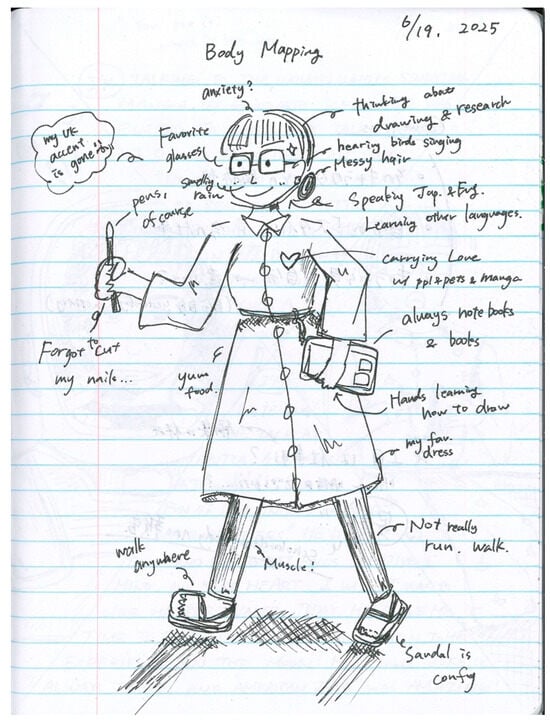 6/19. 2025
Body Mapping
anxiety?
thinking about
drawing & research
my UK
accent
is gone...
Favorite
glasses
hearing birds singing
Messy hair
smelling
rain
pens,
of course
Speaking Jap. & Eng.
Learning other languages.
carrying Love
w/ ppl & pets & manga
always notebooks
& books
Forgot to cut
my nails...
yum
food.
Hands learning
how to draw
my fav.
dress
Not really
run. walk.
walk
anywhere
Muscle!
Sandal is
comfy